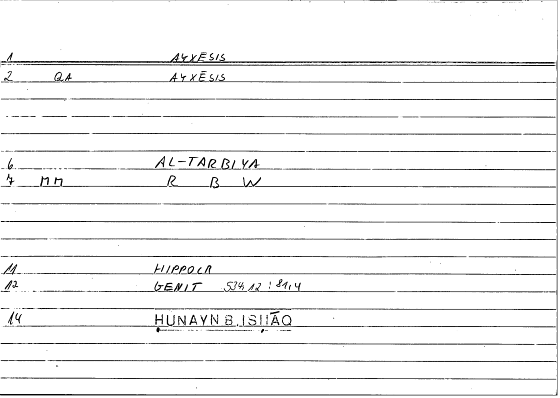 1 AYXESIS
2 QA AYXESIS
6 AL-TARBIYA
7 MM R B W
11 HIPPOCR
12 GENIT 534,12 : 81,4
14 ḤUNAYN B. ISḤĀQ